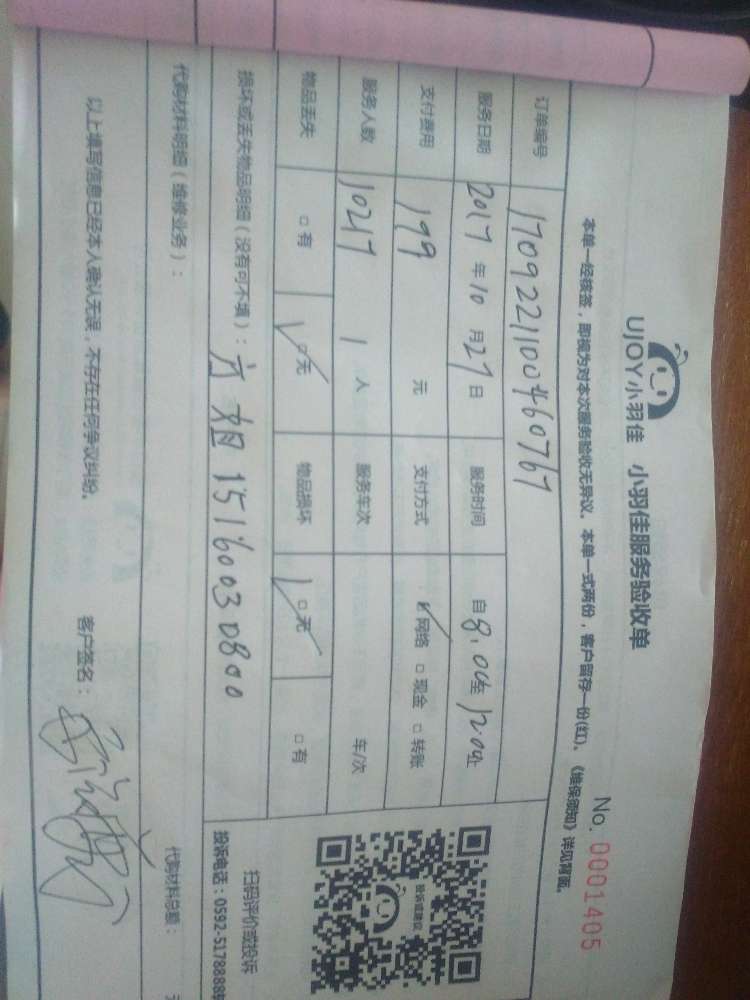 UJOY小羽佳 小羽佳服务验收单
No. 0001405
本单一经核签，即视为对本次服务验收无异议。本单一式两份，客户留存一份(红)。《维保须知》详见背面。
订单编号 170922110046076​7
服务日期 2017 年 10 月 27 日 服务时间 自 8:04至 12:04止
支付费用 199 元 支付方式 ☑网络 □现金 □转账
服务人数 10217 1 人 服务车次 车/次
物品丢失 □有 ☑无 物品损坏 ☑无 □有
损坏或丢失物品明细（没有可不填）： 15160030800
代购材料明细（维修业务）： 代购材料总额：
以上填写信息已经本人确认无误，不存在任何争议纠纷。 客户签名：
投诉或建议
扫码评价或投诉
投诉电话：0592-5178888